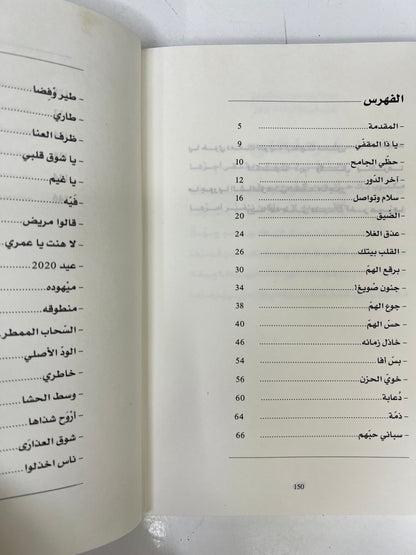 الفهرس
– المقدمة ........ 5
– يا ذا المقفّي ........ 9
– حظّي الجامح ........ 10
– آخر الدّور ........ 12
– سلام وتواصل ........ 16
– الضّيق ........ 20
– عذق الغلا ........ 24
– القلب بيتك ........ 26
– برقع الهمّ ........ 30
– جنون صُويغ! ........ 34
– جوع الهمّ ........ 38
– حسّ الهمّ ........ 40
– خاذل زمانه ........ 46
– بسّ آفا ........ 54
– خويّ الحزن ........ 56
– دُعابة ........ 60
– ذمّة ........ 64
– سباني حبّهم ........ 66
150
– طير وّفضا
– طاري
– ظرف العنا
– يا شوق قلبي
– يا غيم
– فيّه
– قالوا مريض
– لا هنت يا عمري
– عيد 2020
– ميْهوده
– منطوقه
– السّحاب الممطر
– الودّ الأصلي
– خاطري
– وسط الحشا
– أرْوَح شذاها
– شوق العذارى
– ناس اخذلوا